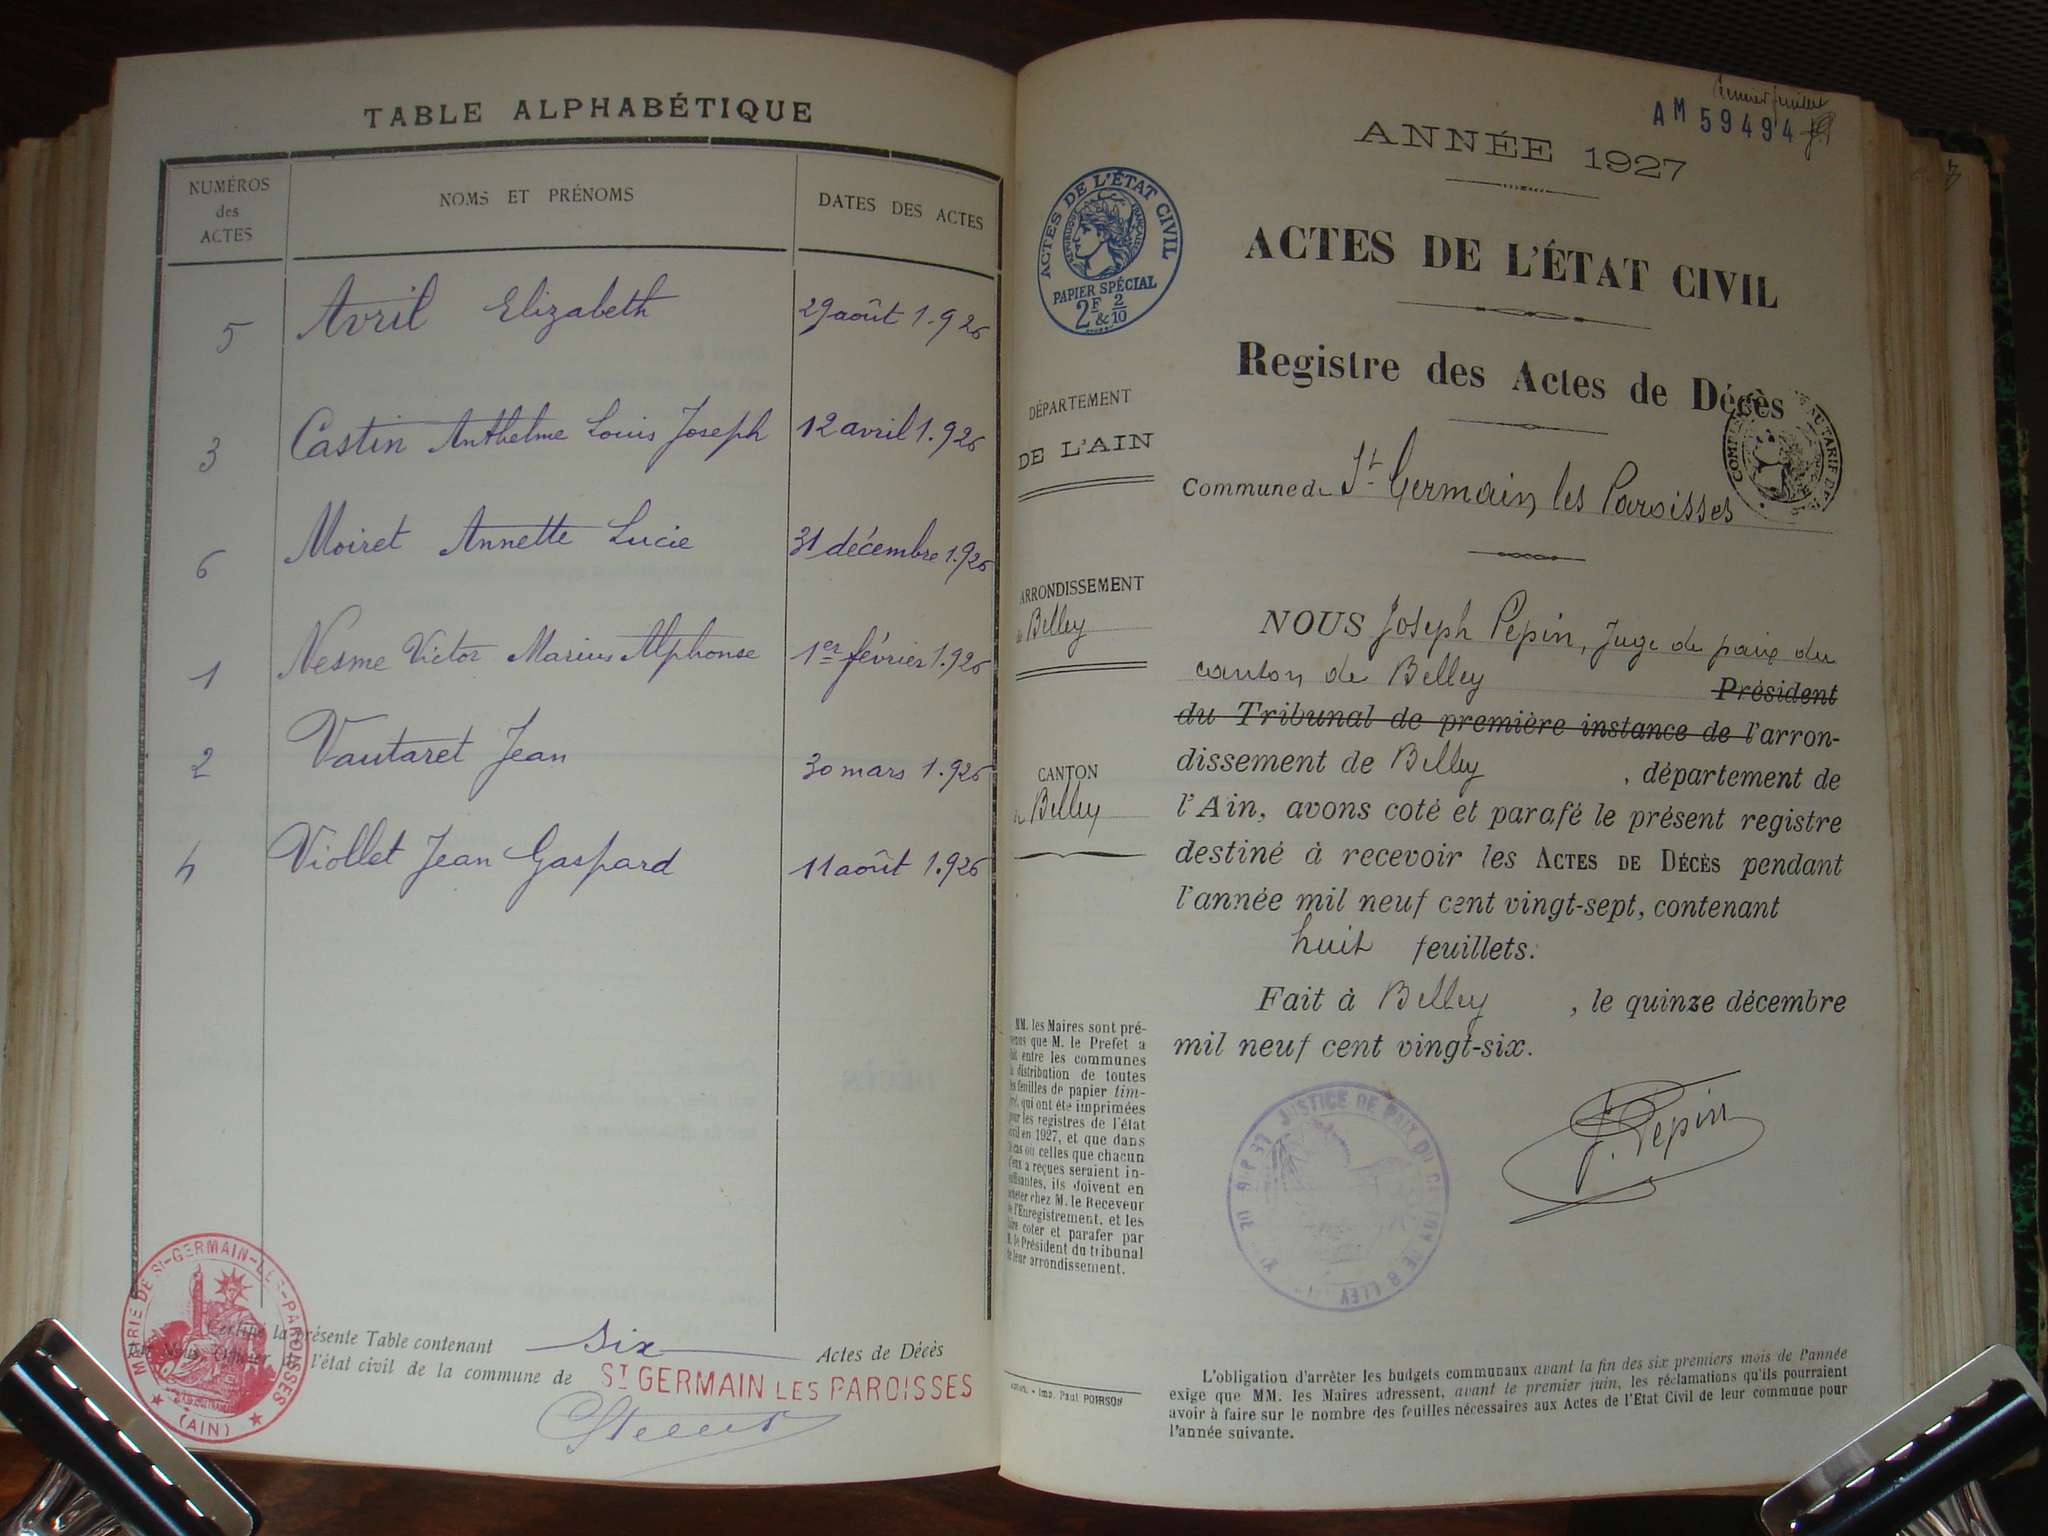 TABLE ALPHABÉTIQUE
NUMÉROS
des
ACTES
NOMS ET PRÉNOMS
DATES DES ACTES
5 Avril Elizabeth 29 août 1.926
3 Castin Anthelme Louis Joseph 12 avril 1.926
6 Moiret Annette Lucie 31 décembre 1.926
1 Nesme Victor Marius Alphonse 1er février 1.926
2 Vautaret Jean 30 mars 1.926
4 Viollet Jean Gaspard 11 août 1.926
Certifié la présente Table contenant six Actes de Décès
Par Nous Officier de l'état civil de la commune de ST GERMAIN LES PAROISSES
MAIRIE DE ST-GERMAIN-LES-PAROISSES
(AIN)
AM 59494
ANNÉE 1927
ACTES DE L'ÉTAT CIVIL
RÉPUBLIQUE FRANÇAISE
PAPIER SPÉCIAL
2F & 2/10
ACTES DE L'ÉTAT CIVIL
Registre des Actes de Décès
DÉPARTEMENT
DE L'AIN
Commune de St Germain les Paroisses
ARRONDISSEMENT
de Belley
CANTON
de Belley
NOUS Joseph Pépin, Juge de paix du
canton de Belley Président
du Tribunal de première instance de l'arron-
dissement de Belley, département de
l'Ain, avons coté et parafé le présent registre
destiné à recevoir les ACTES DE DÉCÈS pendant
l'année mil neuf cent vingt-sept, contenant
huit feuillets.
Fait à Belley, le quinze décembre
mil neuf cent vingt-six.
J. Pépin
JUSTICE DE PAIX DU CANTON DE BELLEY
MM. les Maires sont pré-
venus que M. le Prefet a
fait entre les communes
la distribution de toutes
les feuilles de papier tim-
bré, qui ont été imprimées
pour les registres de l'état
civil en 1927, et que dans
le cas où celles que chacun
d'eux a reçues seraient in-
suffisantes, ils doivent en
acheter chez M. le Receveur
de l'Enregistrement, et les
faire coter et parafer par
M. le Président du tribunal
de leur arrondissement.
Imp. Paul POIRSON
L'obligation d'arrêter les budgets communaux avant la fin des six premiers mois de l'année
exige que MM. les Maires adressent, avant le premier juin, les réclamations qu'ils pourraient
avoir à faire sur le nombre des feuilles nécessaires aux Actes de l'Etat Civil de leur commune pour
l'année suivante.